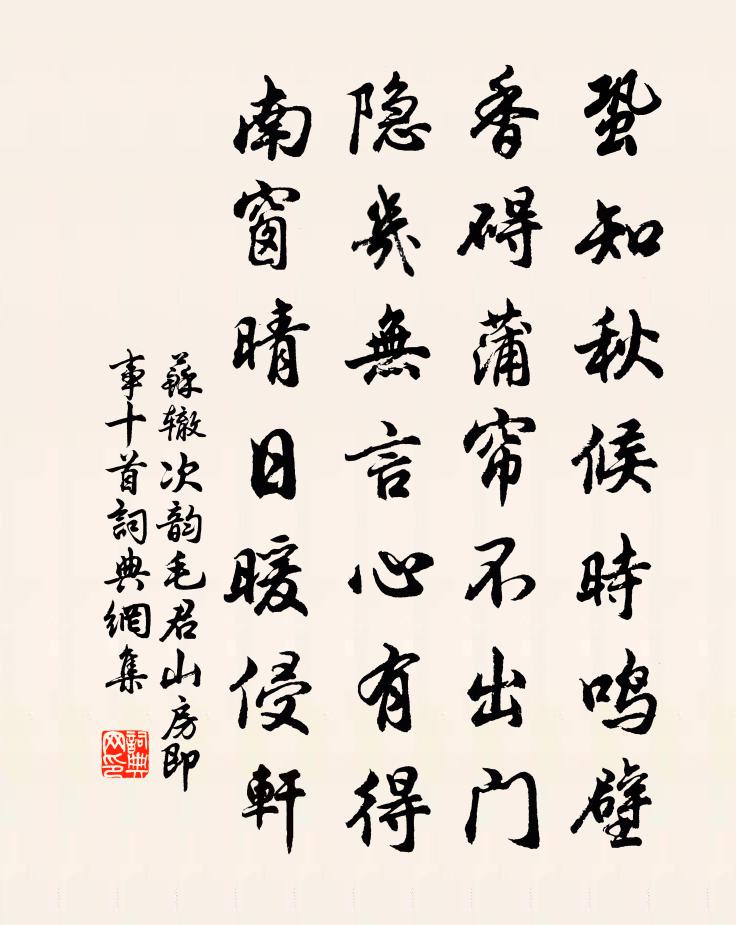 蛩知秋候時鸣壁
香碍蒲帘不出门
隐幾無言心有得
南窗晴日暖侵軒
蘇辙次韵毛君山房即
事十首詞典網集
詞典网印